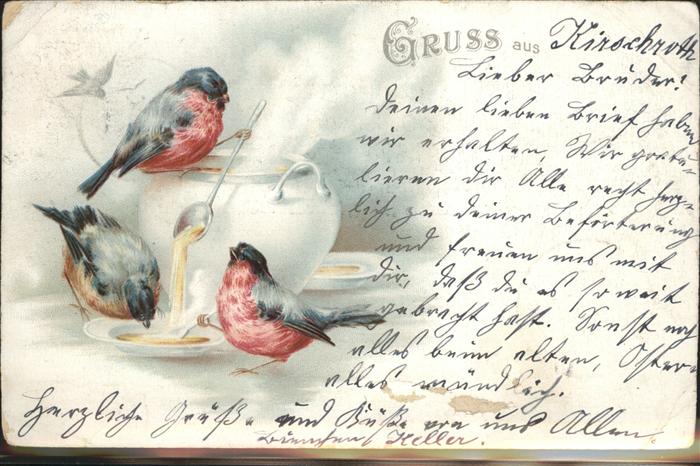 GRUSS aus Kirschroth
Lieber Bruder!
Deinen lieben Brief haben
wir erhalten, Wir gratu-
lieren dir Alle recht herz-
lich zu deiner Beförderung
und freuen uns mit
dir, daß du es so weit
gebracht hast. Sonst noch
alles beim alten, Ostern
alles mündlich.
Herzliche Grüße und Küße von uns Allen
Keller.